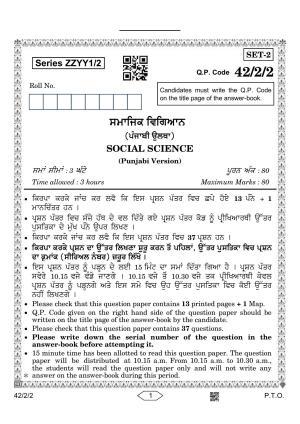 SET-2
Series ZZYY1/2
Q.P. Code 42/2/2
Roll No.
Candidates must write the Q.P. Code
on the title page of the answer-book.
ਸਮਾਜਿਕ ਵਿਗਿਆਨ
(ਪੰਜਾਬੀ ਉਲਥਾ)
SOCIAL SCIENCE
(Punjabi Version)
ਸਮਾਂ ਸੀਮਾਂ : 3 ਘੰਟੇ ਪੂਰਨ ਅੰਕ : 80
Time allowed : 3 hours Maximum Marks : 80
• ਕਿਰਪਾ ਕਰਕੇ ਜਾਂਚ ਕਰ ਲਵੋ ਕਿ ਇਸ ਪ੍ਰਸ਼ਨ ਪੱਤਰ ਵਿਚ ਛਪੇ ਹੋਏ 13 ਪੰਨੇ + 1
ਮਾਨਚਿੱਤਰ ਹਨ ।
• ਪ੍ਰਸ਼ਨ ਪੱਤਰ ਵਿਚ ਸੱਜੇ ਹੱਥ ਦੇ ਵਲ ਦਿੱਤੇ ਗਏ ਪ੍ਰਸ਼ਨ ਪੱਤਰ ਕੋਡ ਨੂੰ ਪ੍ਰੀਖਿਆਰਥੀ ਉੱਤਰ
ਪੁਸਤਿਕਾ ਦੇ ਮੁੱਖ ਪੰਨੇ ਉਪਰ ਲਿਖਣ ।
• ਕਿਰਪਾ ਕਰਕੇ ਜਾਂਚ ਕਰ ਲਵੋ ਕਿ ਇਸ ਪ੍ਰਸ਼ਨ ਪੱਤਰ ਵਿਚ 37 ਪ੍ਰਸ਼ਨ ਹਨ ।
• ਕਿਰਪਾ ਕਰਕੇ ਪ੍ਰਸ਼ਨ ਦਾ ਉੱਤਰ ਲਿਖਣਾ ਸ਼ੁਰੂ ਕਰਨ ਤੋਂ ਪਹਿਲਾਂ, ਉੱਤਰ ਪੁਸਤਿਕਾ ਵਿਚ ਪ੍ਰਸ਼ਨ
ਦਾ ਕ੍ਰਮਾਂਕ (ਸੀਰਿਅਲ ਨੰਬਰ) ਜ਼ਰੂਰ ਲਿੱਖੋ ।
• ਇਸ ਪ੍ਰਸ਼ਨ ਪੱਤਰ ਨੂੰ ਪੜ੍ਹਨ ਦੇ ਲਈ 15 ਮਿੰਟ ਦਾ ਸਮਾਂ ਦਿੱਤਾ ਗਿਆ ਹੈ । ਪ੍ਰਸ਼ਨ ਪੱਤਰ
ਸਵੇਰੇ 10.15 ਵਜੇ ਵੰਡਿਆ ਜਾਏਗਾ । 10.15 ਵਜੇ ਤੋਂ 10.30 ਵਜੇ ਤਕ ਪ੍ਰੀਖਿਆਰਥੀ ਕੇਵਲ
ਪ੍ਰਸ਼ਨ ਪੱਤਰ ਨੂੰ ਪੜ੍ਹਨਗੇ ਅਤੇ ਇਸ ਸਮੇਂ ਵਿਚ ਉਹ ਉੱਤਰ ਪੁਸਤਿਕਾ ਵਿਚ ਕੋਈ ਉੱਤਰ
ਨਹੀਂ ਲਿਖਣਗੇ ।
• Please check that this question paper contains 13 printed pages + 1 Map.
• Q.P. Code given on the right hand side of the question paper should be
written on the title page of the answer-book by the candidate.
• Please check that this question paper contains 37 questions.
• Please write down the serial number of the question in the
answer-book before attempting it.
• 15 minute time has been allotted to read this question paper. The question
paper will be distributed at 10.15 a.m. From 10.15 a.m. to 10.30 a.m.,
the students will read the question paper only and will not write any
answer on the answer-book during this period.
42/2/2 1 P.T.O.